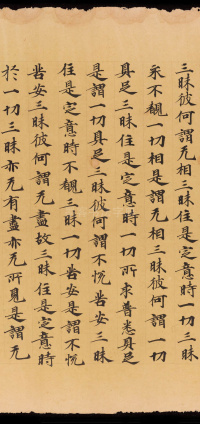 三昧彼何謂无相三昧住是定意時一切三昧
永不覩一切相是謂无相三昧彼何謂一切
具足三昧住是定意時一切所求普悉具足
是謂一切具足三昧彼何謂不恱苦安三昧
住是定意時不覩三昧一切苦安是謂不恱
苦安三昧彼何謂无盡故三昧住是定意時
於一切三昧亦无有盡亦无所見是謂无